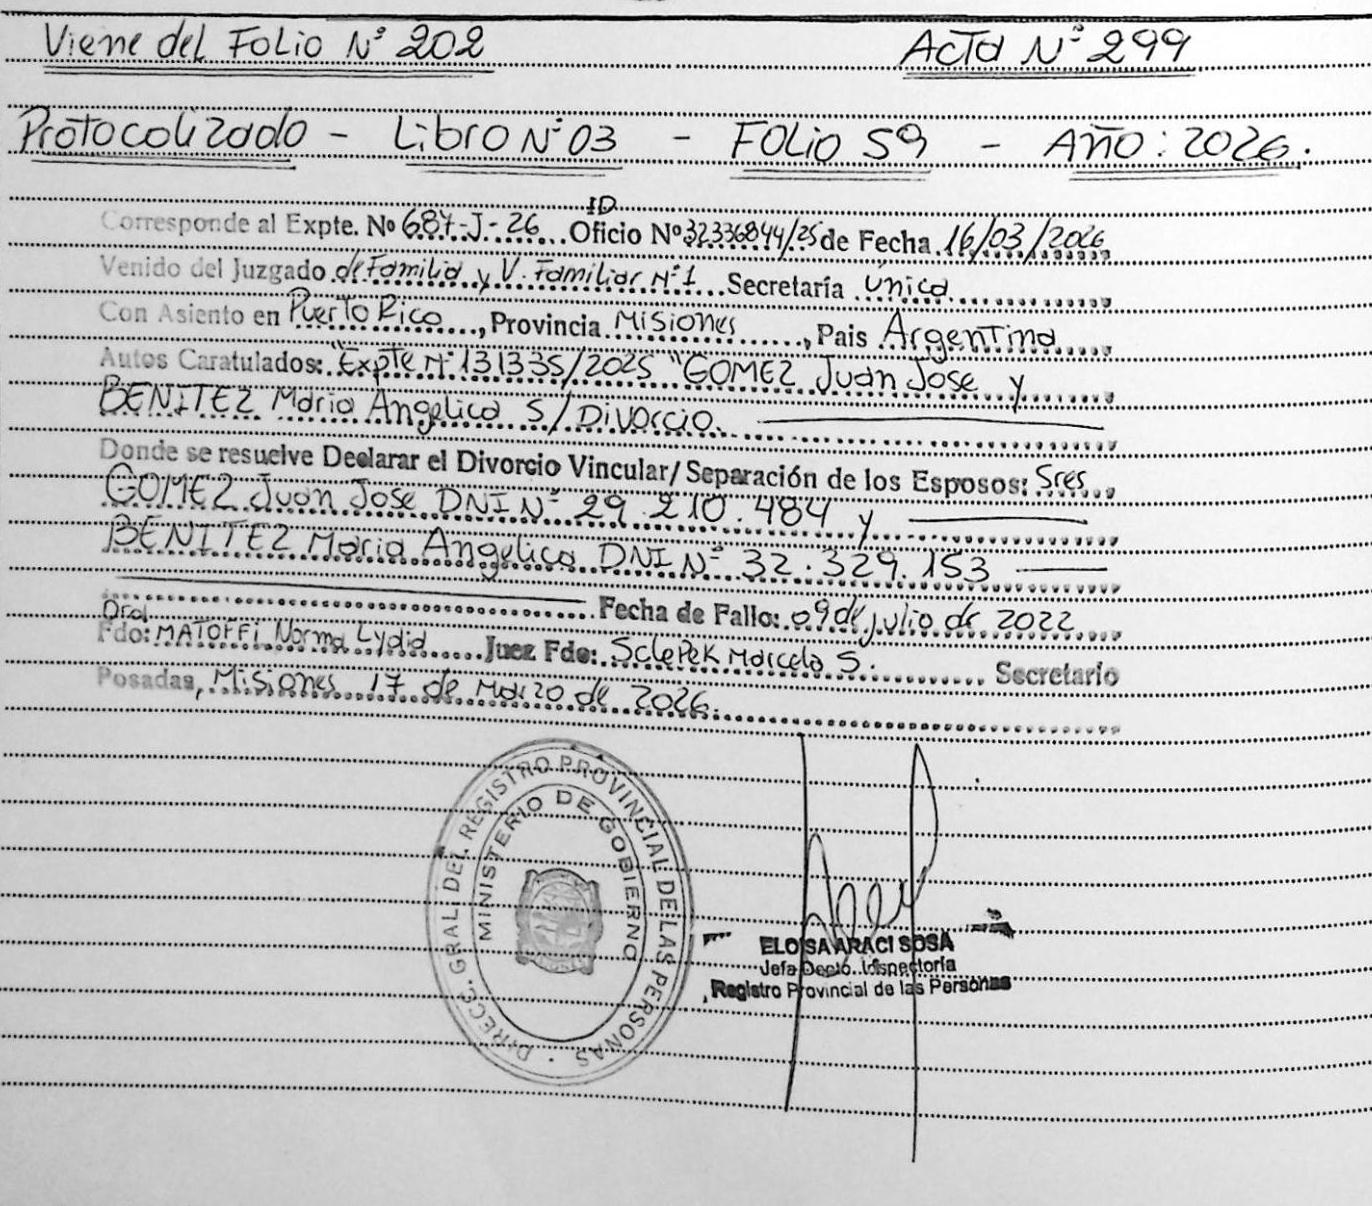 Viene del Folio Nº 202 Acta Nº 299
Protocolizado - Libro Nº 03 - Folio 59 - Año: 2026.
ID
Corresponde al Expte. Nº 687-J-26 Oficio Nº 32336844/25 de Fecha 16/03/2026
Venido del Juzgado de Familia y V. Familiar Nº 1 Secretaría única
Con Asiento en Puerto Rico, Provincia Misiones, Pais Argentina
Autos Caratulados: "Expte Nº 131335/2025 "GOMEZ Juan Jose y
BENITEZ Maria Angelica S/Divorcio.
Donde se resuelve Declarar el Divorcio Vincular/ Separación de los Esposos: Sres
GOMEZ Juan Jose DNI Nº 29.210.484 y
BENITEZ Maria Angelica DNI Nº 32.329.153
Fecha de Fallo: 09 de julio de 2022
Dra.
Fdo: MATOFFi Norma Lydia Juez Fdo: Sclepek Marcela S. Secretario
Posadas, Misiones 17 de Marzo de 2026.
DIRECC. GRAL. DEL REGISTRO PROVINCIAL DE LAS PERSONAS
MINISTERIO DE GOBIERNO
ELOISA ARACI SOSA
Jefa Depto. Inspectoría
Registro Provincial de las Personas